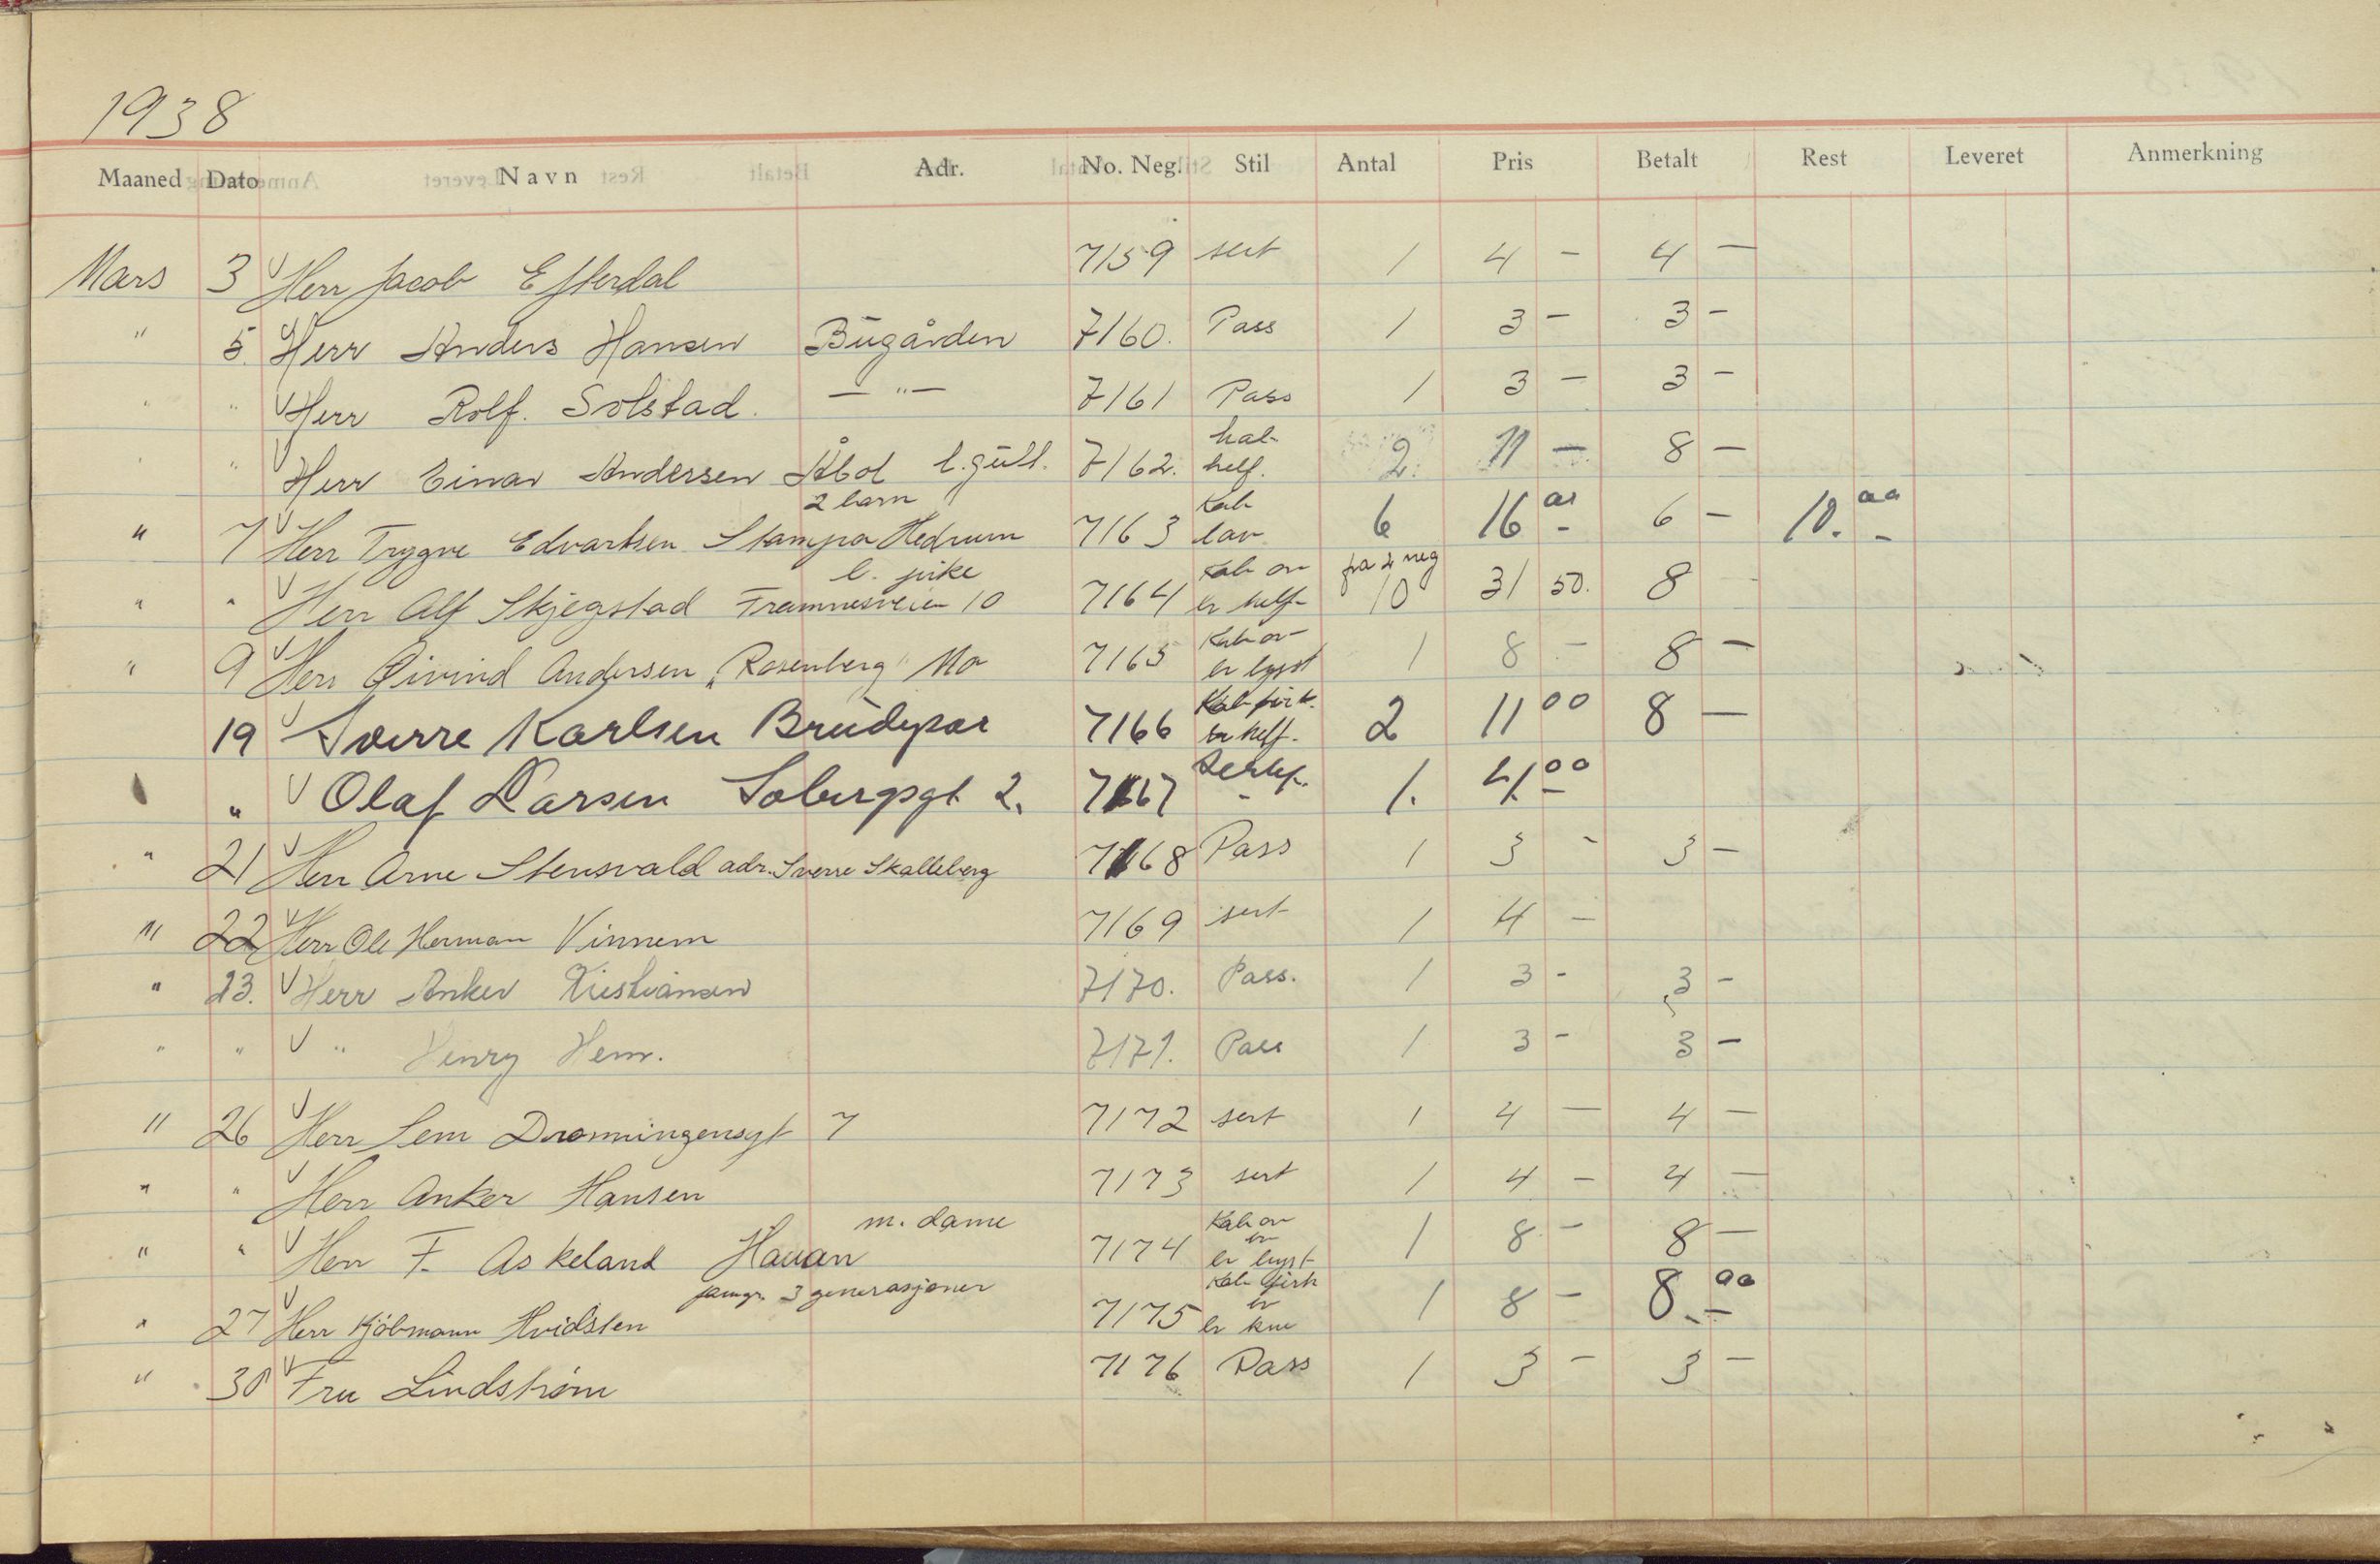 1938
Maaned Dato Navn Adr. No. Neg. Stil Antal Pris Betalt Rest Leveret Anmerkning
Mars 3 V Herr Jacob Efterdal 7159 sert 1 4 – 4 –
" 5. V Herr Anders Hansen Bugården 7160. Pass 1 3 – 3 –
" " V Herr Rolf. Solstad. — " — 7161 Pass 1 3 – 3 –
" " V Herr Einar Andersen Åbol l. gutt. 7162. helf. 2. 11 – 8 –
2 barn
" 7 V Herr Trygve Edvartsen Stampa Hedrum 7163 Kab 6 16 00 – 6 – 10. 00 –
l. pike fra 2 neg
" " V Herr Alf Skjegstad Framnesveien 10 7164 Kab er helf 10 31 50. 8
" 9 V Herr Øivind Andersen „Rosenberg" Mo 7165 Kab er lyst 1 8 – 8 –
19 V Sverre Karlsen Brudepar 7166 Kab helf. 2 11 00 8 –
" V Olaf Larsen 2. 7167 1. 4. 00
" 21 V Herr Arne Stensvald adr. Sverre Skalleberg 7168 Pass 1 3 - 3 –
" 22 V Herr Ole Herman Vinnem 7169 sert 1 4 –
" 23. V Herr Anker Kristiansen 7170. Pass. 1 3 - 3 –
" " V " Henry Hem. 7171. Pass 1 3 - 3 –
" 26 V Herr Sem Dronningensgt 7 7172 sert 1 4 – 4 –
" " V Herr Anker Hansen 7173 sert 1 4 – 4 –
m. dame
" " V Herr F. Askeland Hauan 7174 Kab er lyst 1 8 – 8 –
famgr. 3 generasjoner
" 27 V Herr Kjöbmann Hvidsten 7175 Kab er kne 1 8 – 8. 00 –
" 30 V Fru Lindstrøm 7176 Pass 1 3 – 3 –